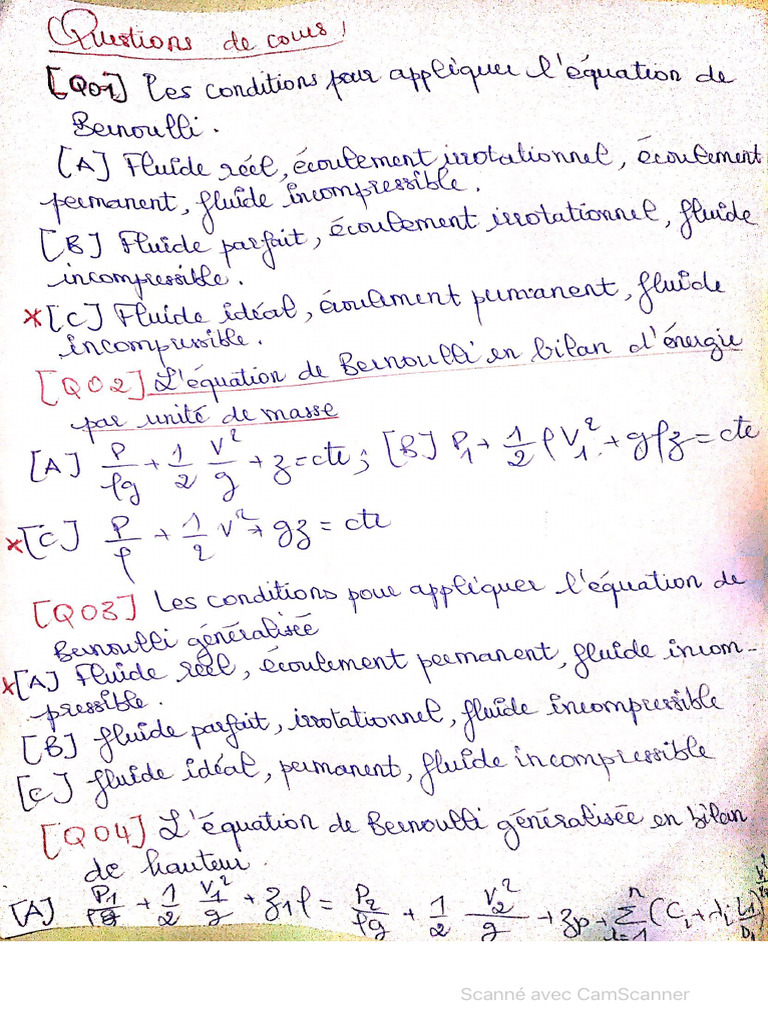 Questions de cours !
[Q01] Les conditions pour appliquer l'équation de
Bernoulli.
[A] Fluide réél, écoulement irrotationnel, écoulement
permanent, fluide incompressible.
[B] Fluide parfait, écoulement irrotationnel, fluide
incompressible.
x [C] Fluide idéal, écoulement permanent, fluide
incompressible.
[Q02] L'équation de Bernoulli en bilan d'énergie
par unité de masse
[A] P/ρg + 1/2 V²/g + z = cte ; [B] P₁ + 1/2 ρV₁² + gρz = cte
x [C] P/ρ + 1/2 V² + gz = cte
[Q03] Les conditions pour appliquer l'équation de
Bernoulli généralisée
x [A] Fluide réel, écoulement permanent, fluide incom-
pressible.
[B] fluide parfait, irrotationnel, fluide incompressible
[C] fluide idéal, permanent, fluide incompressible
[Q04] L'équation de Bernoulli généralisée en bilan
de hauteur.
[A] P₁/ρg + 1/2 V₁²/g + z₁ρ = P₂/ρg + 1/2 V₂²/g + zρ + Σ
Scanné avec CamScanner